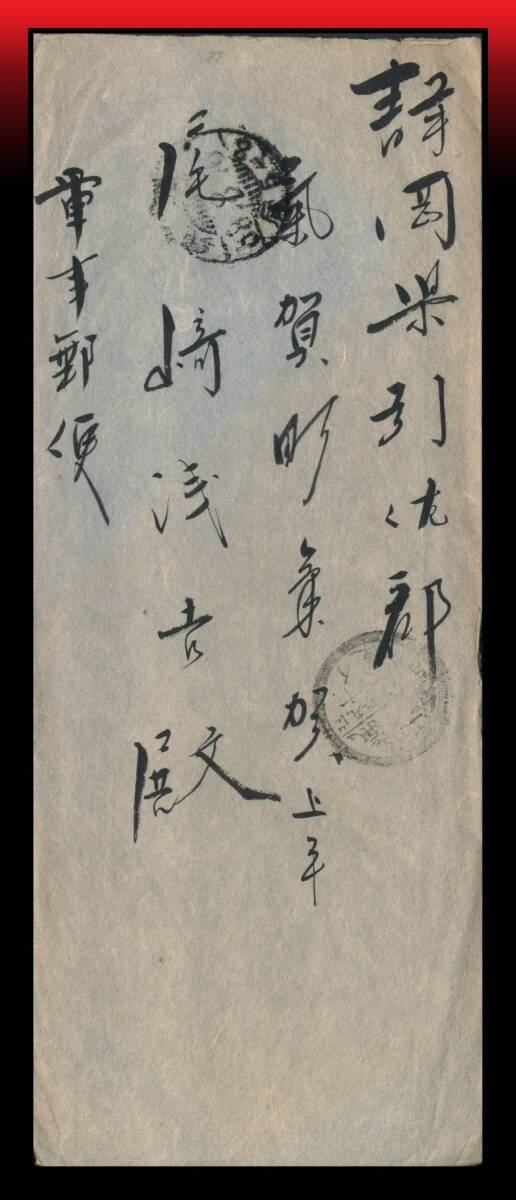 静岡県引佐郡
氣賀町氣賀上平
尾崎浅吉殿
軍事郵便